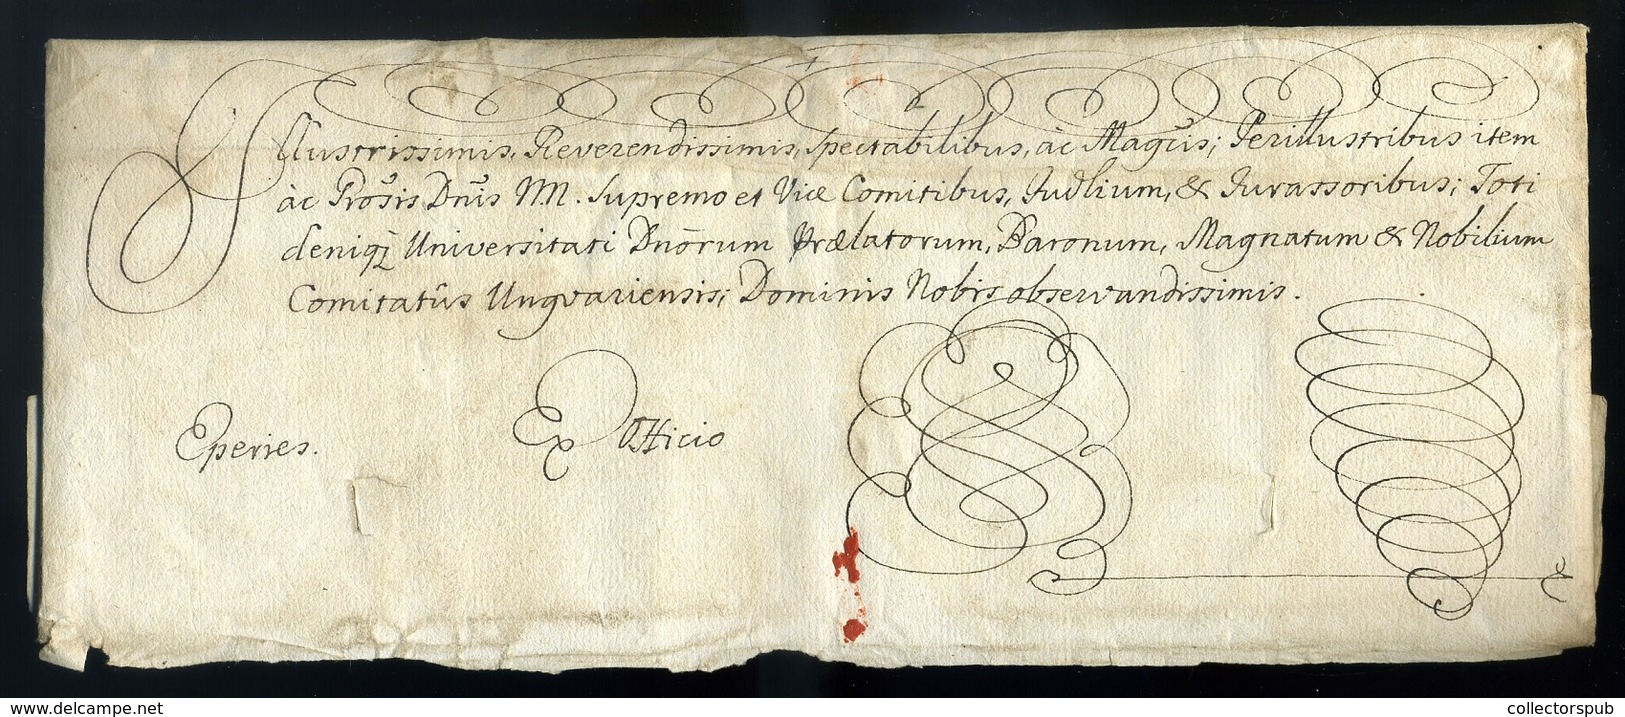 Illustrissimis, Reverendissimis, Spectabilibus, àc Magcis; Perillustribus item
àc Prosis Dnis NN. Supremo et Vice Comitibus, Judlium, & Jurassoribus; Toti
deniq; Universitati Dnōrum Prælatorum, Baronum, Magnatum & Nobilium
Comitatûs Ungvariensis; Dominis Nobis observandissimis.
Eperies. Ex Officio
www.delcampe.net collectorspub